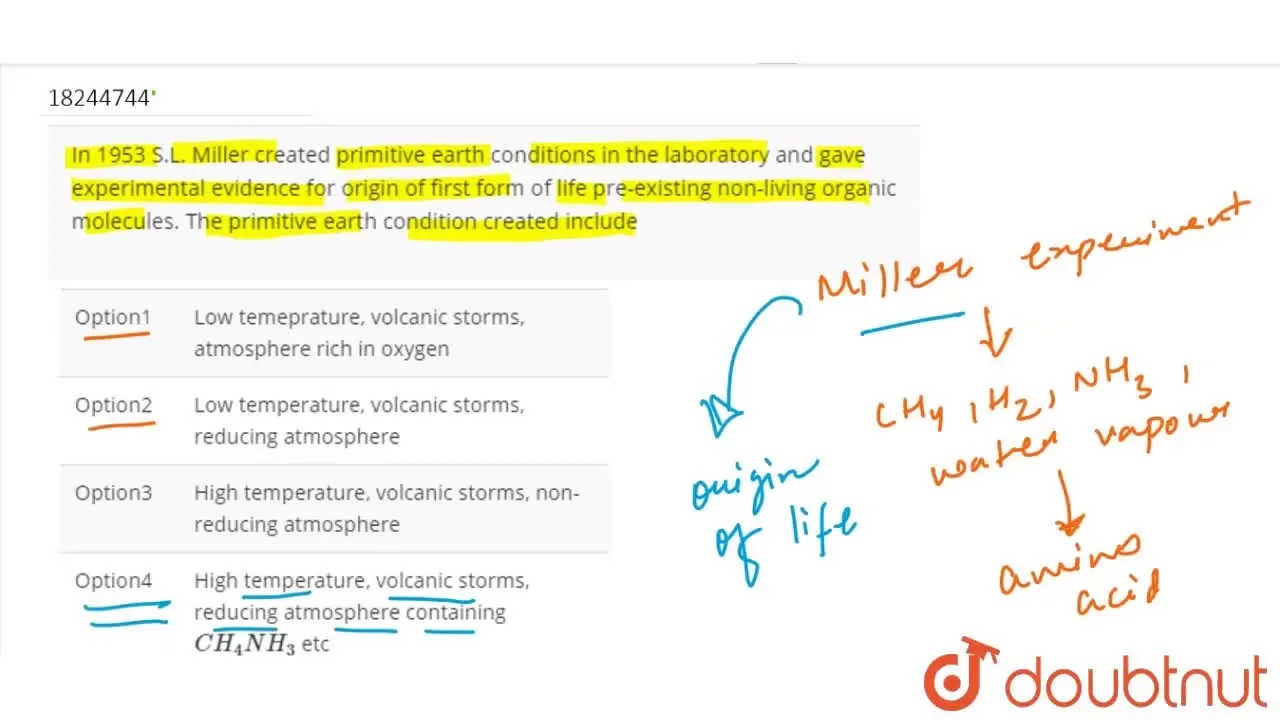 18244744
In 1953 S.L. Miller created primitive earth conditions in the laboratory and gave
experimental evidence for origin of first form of life pre-existing non-living organic
molecules. The primitive earth condition created include
Option1 Low temeprature, volcanic storms,
atmosphere rich in oxygen
Option2 Low temperature, volcanic storms,
reducing atmosphere
Option3 High temperature, volcanic storms, non-
reducing atmosphere
Option4 High temperature, volcanic storms,
reducing atmosphere containing
CH₄NH₃ etc
Miller experiment
CH4, H2, NH3,
water vapour
amino
acid
origin
of life
doubtnut